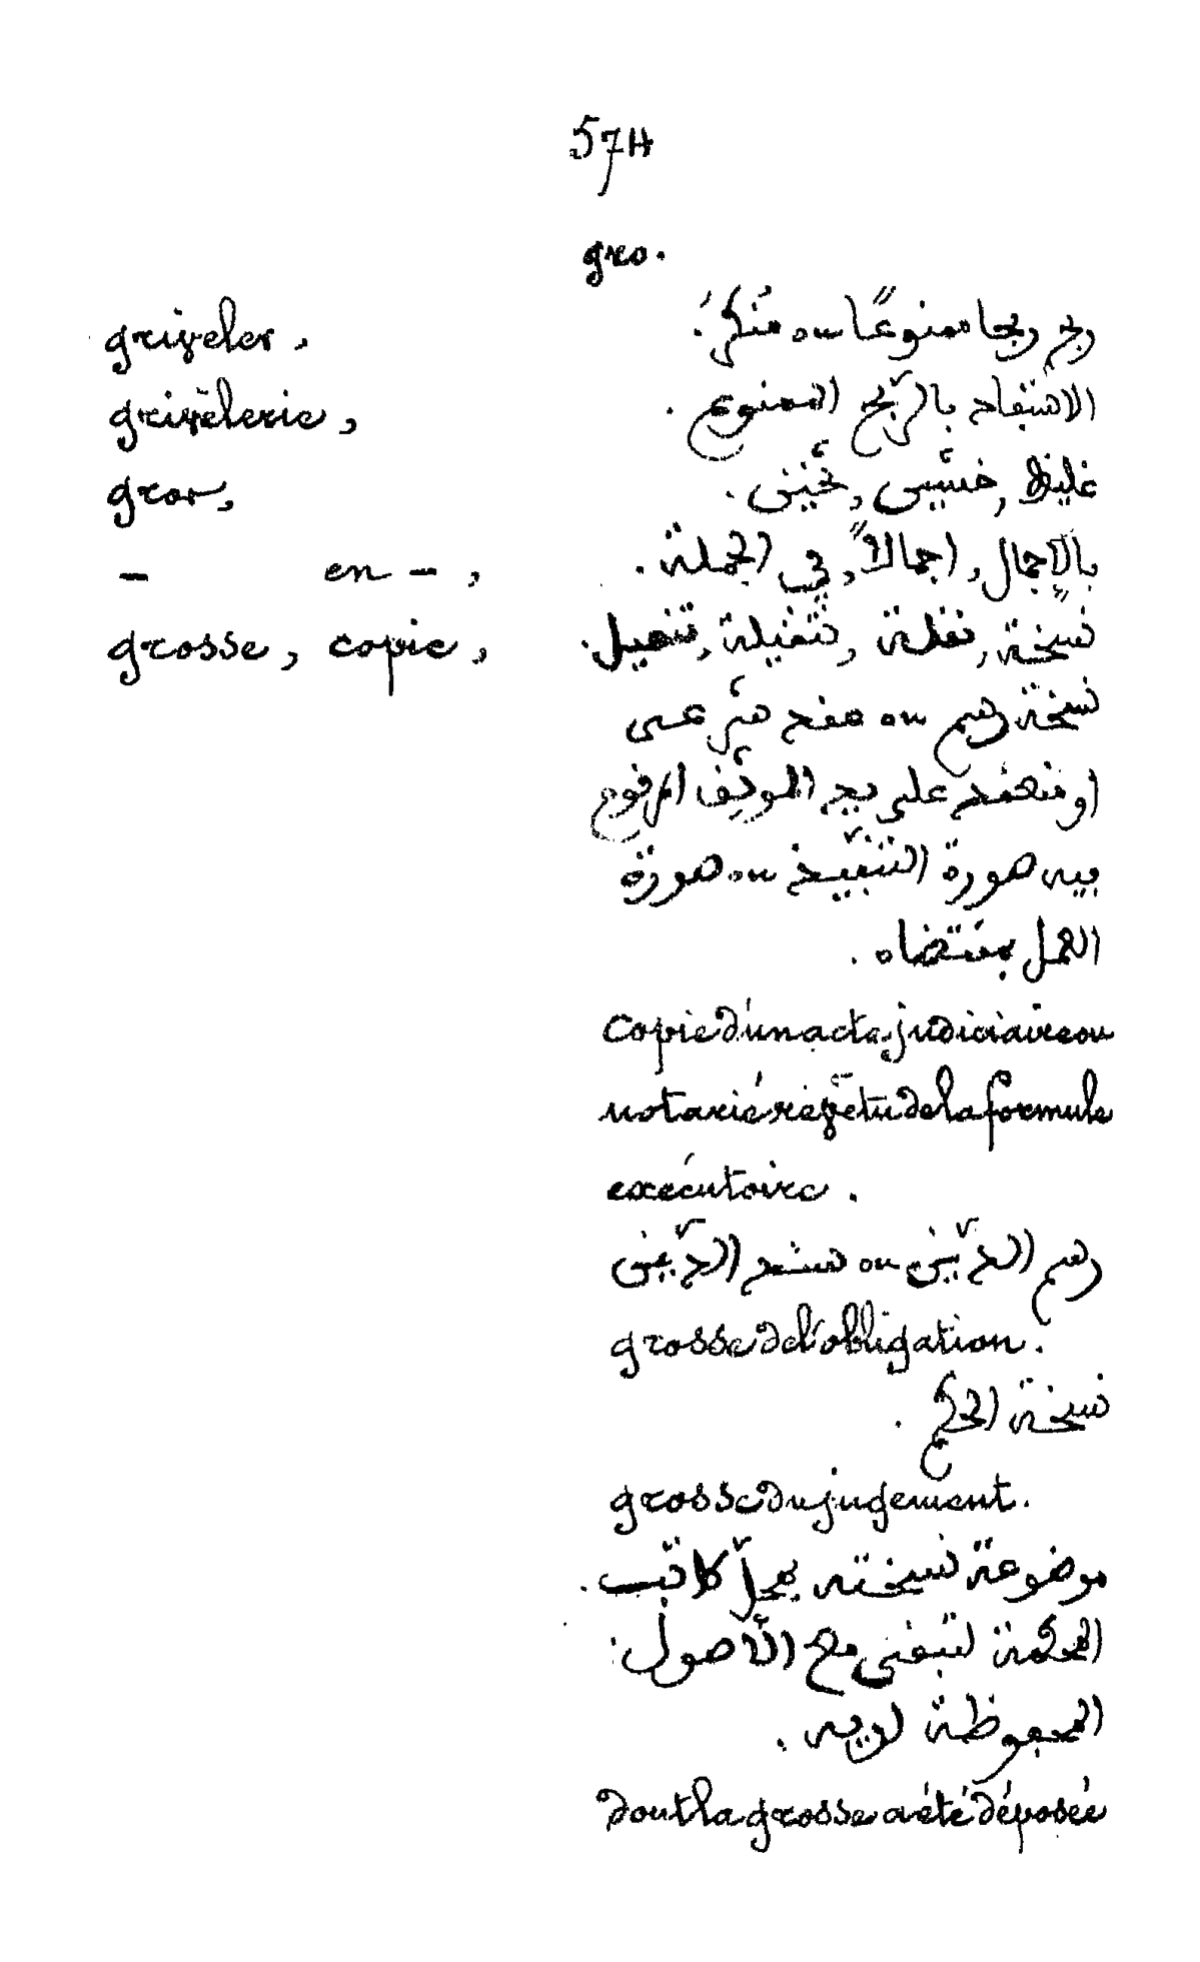 574
gro.
griveler, ربح ربحا ممنوعًا ou منكرًا.
grivèlerie, الانتفاع بالرّبح الممنوع.
gros, غليظ, خشين, ثخين.
— en —, بالإجمال, اجمالاً, في الجملة.
grosse, copie, نسخة, نقلة, تنقيلة, تنقيل.
نسخة رسم ou عقد شرعي
او منعقد على يد الموثّق المرفوع
بيه صورة التنفيذ ou صورة
العمل بمقتضاه.
copie d'un acte judiciaire ou
notarié revêtu de la formule
exécutoire.
رسم الدَّين ou سند الدَّين
grosse de l'obligation.
نسخة الحكم.
grosse du jugement.
موضوعة نسخته بمحلّ كاتب
المحكمة لتبقى مع الأصول
المحفوظة لديه.
dont la grosse a été déposée